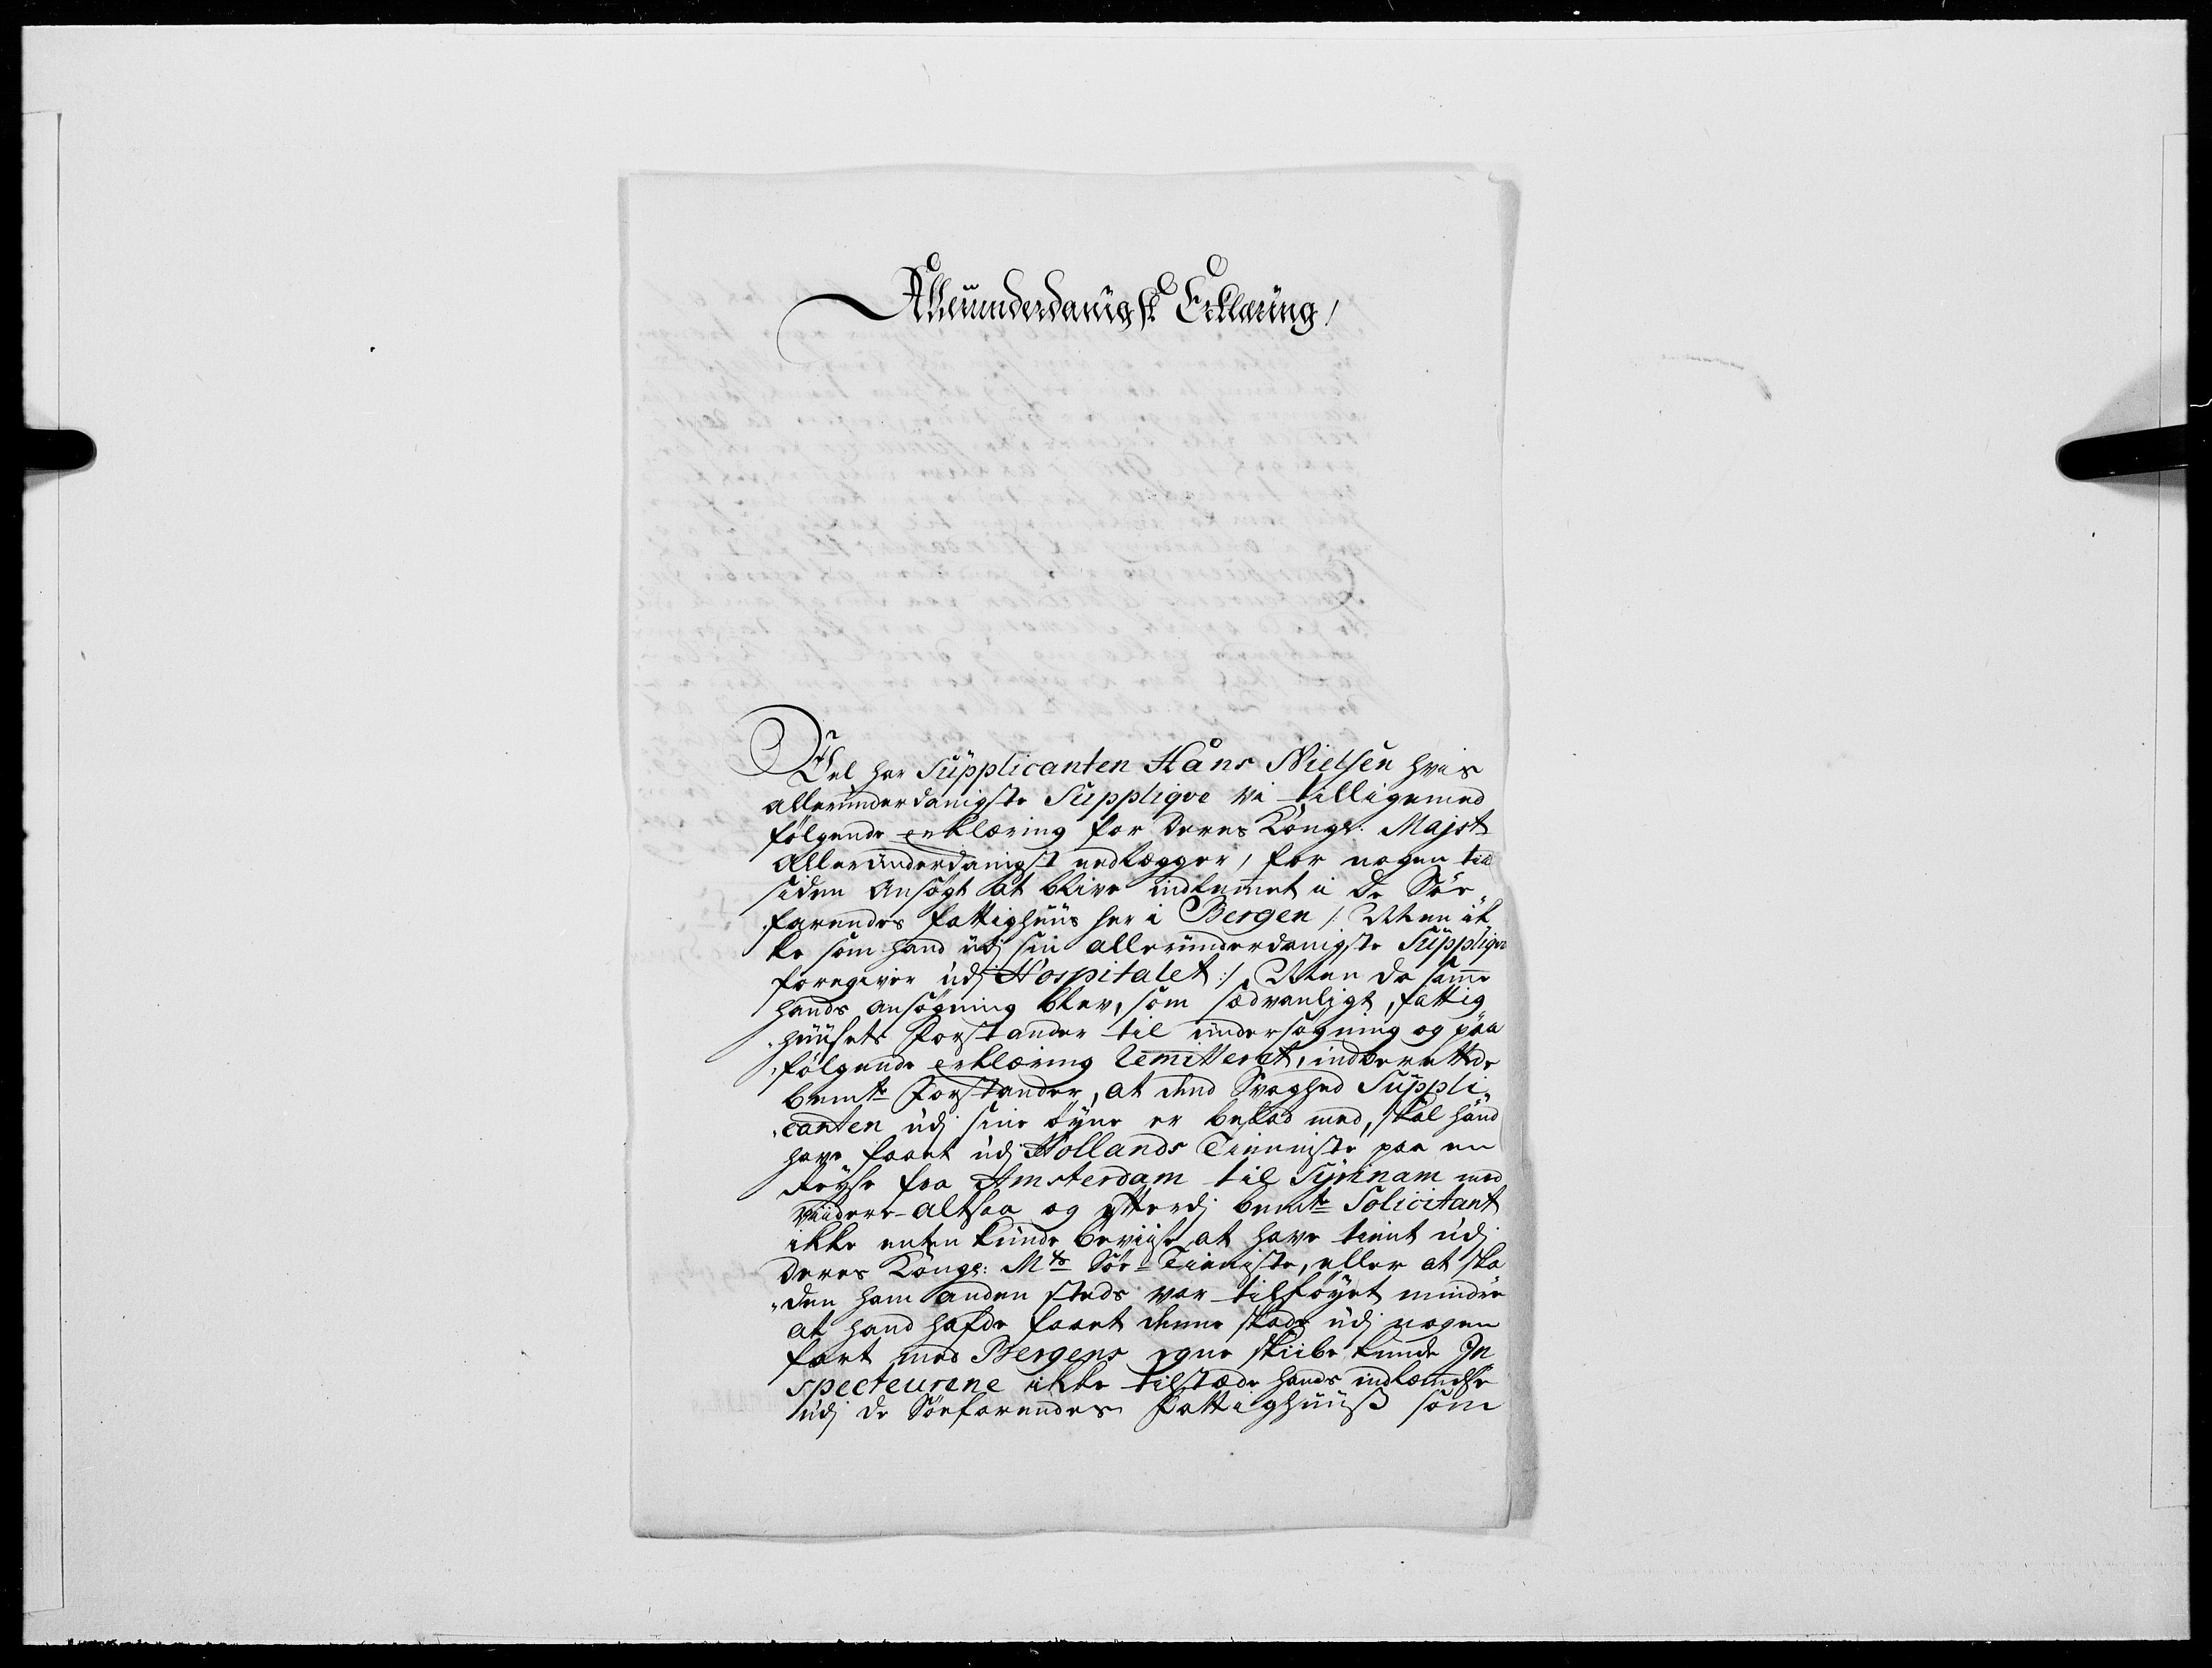 Allerunderdanigst Erklæring!
Vel har Supplicanten Hans Nielsen hvis
allerunderdanigste Suppliqve vi tilligemed
følgende erklæring for Deres Kongl: Majst
Allerunderdanigst nedlegger, for nogen tiid
siden Ansøgt at blive indlemmet i De Søe-
farendes fattighuus her i Bergen /: Men ik-
ke som hand udj sin allerunderdanigste Suppliqve
foregiver udj Hospitalet :/ Men da samme
hands ansøgning blev, som sædvanligt, fattig-
huusets Forstander til undersøgning og paa-
følgende erklæring Remitteret, indberettede
bemte Forstander, at dend Svaghed Suppli-
canten udj sine øyne er belad med, skal hand
have faaet udj Hollands Tieniste paa en
Reyse fra Amsterdam til Syrinam med
viidere. Altsaa og efterdj bemte Solicitant
ikke enten kunde beviise at have tient udj
Deres Kongl: Mts Søe-Tieniste, eller at ska-
den ham anden steds var tilføyet mindre
at hand hafde faaet denne skade udj nogen
fart med Bergens egne skiibe kunde In
specteurene ikke tilstæde hands indlemmelse
udj de Søefarendes Fattighuuss som